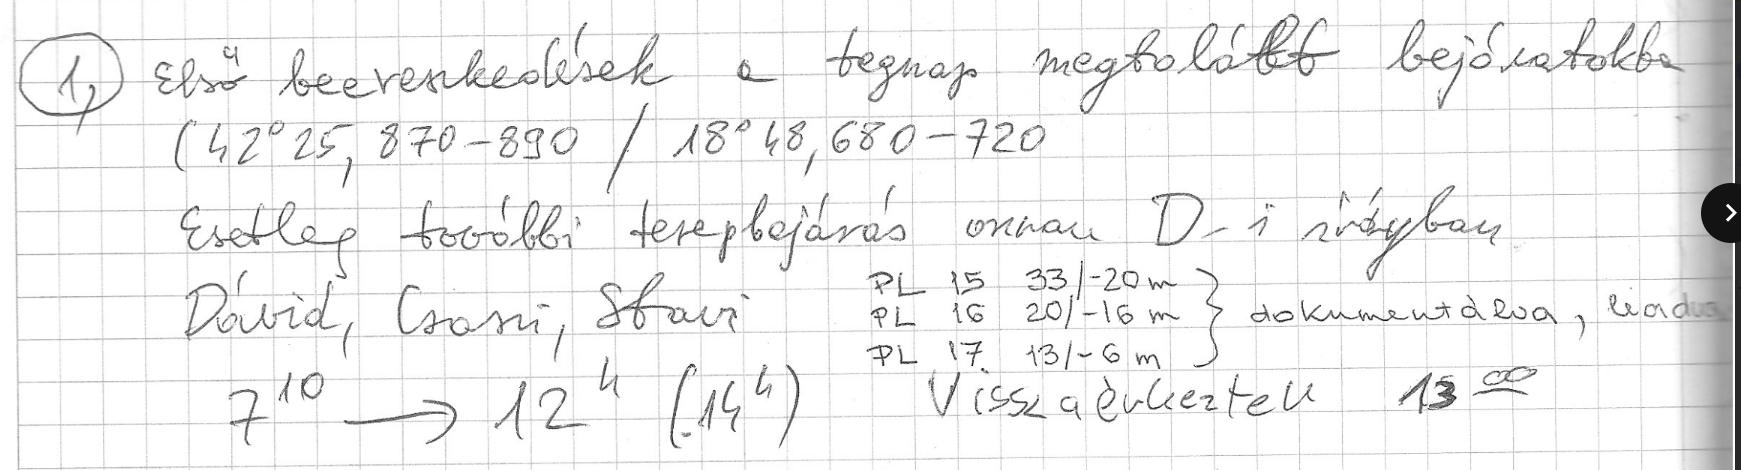 1, Első beereszkedések a tegnap megtalált bejáratokba
(42° 25, 870-890 / 18° 48, 680-720
Esetleg további terepbejárás onnan D-i irányban
Dávid, Csoszi, Stavi
PL 15 33/-20 m
PL 16 20/-16 m } dokumentálva, leadva
PL 17. 13/-6 m
7¹⁰ → 12ʰ (14ʰ) Visszaérkeztek 13⁰⁰